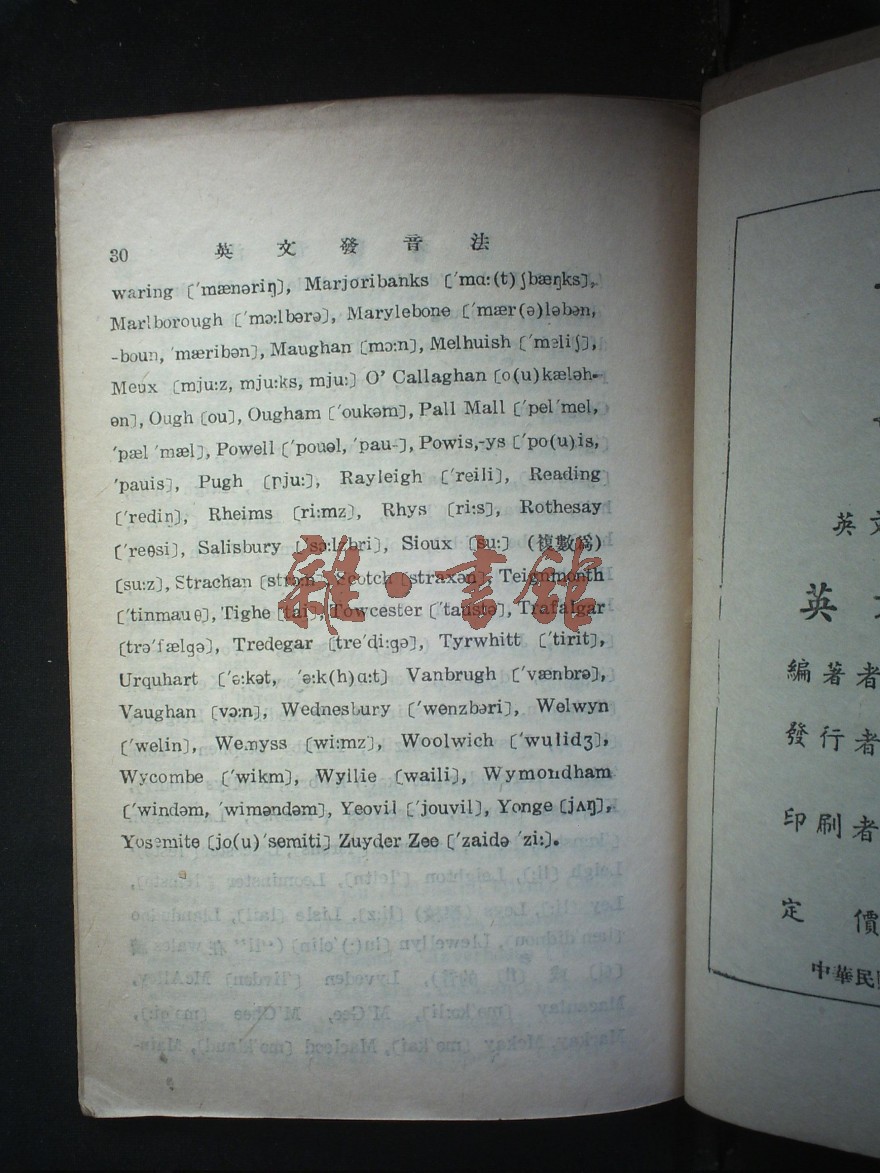 30 英文發音法
waring [ˈmænəriŋ], Marjoribanks [ˈmɑ:(t)ʃbæŋks],
Marlborough [ˈmɔ:lbərə], Marylebone [ˈmær(ə)ləbən,
-boun, ˈmæribən], Maughan [mɔ:n], Melhuish [ˈmeliʃ],
Meux [mju:z, mju:ks, mju:] O' Callaghan [o(u)kæləh-
ən], Ough [ou], Ougham [ˈoukəm], Pall Mall [ˈpelˈmel,
ˈpælˈmæl], Powell [ˈpouəl, ˈpau-], Powis,-ys [ˈpo(u)is,
ˈpauis], Pugh [pju:], Rayleigh [ˈreili], Reading
[ˈrediŋ], Rheims [ri:mz], Rhys [ri:s], Rothesay
[ˈreθsi], Salisbury [ˈsɔ:lzbri], Sioux [su:] (複數爲)
[su:z], Strachan [strɔ:n], Scotch [straxən], Teignmonth
[ˈtinmauθ], Tighe [tai], Towcester [ˈtaustə], Trafalgar
[trəˈfælgə], Tredegar [treˈdi:gə], Tyrwhitt [ˈtirit],
Urquhart [ˈə:kət, ˈə:k(h)ɑ:t] Vanbrugh [ˈvænbrə],
Vaughan [vɔ:n], Wednesbury [ˈwenzbəri], Welwyn
[ˈwelin], Wemyss [wi:mz], Woolwich [ˈwulidʒ],
Wycombe [ˈwikm], Wyllie [waili], Wymondham
[ˈwindəm, ˈwiməndəm], Yeovil [ˈjouvil], Yonge [jʌŋ],
Yosemite [jo(u)ˈsemiti] Zuyder Zee [ˈzaidə ˈzi:].
雜·書館
英文
英
編著者
發行者
印刷者
定價
中華民